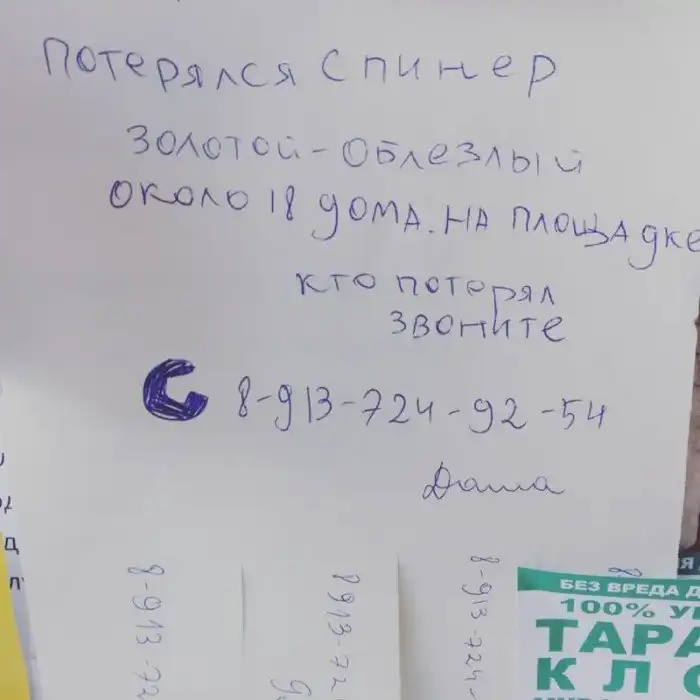 потерялся спинер
золотой-облезлый
около 18 дома. на площадке
кто потерял
звоните
8-913-724-92-54
Даша
8-913-72
8913-72
8-913-724-
БЕЗ ВРЕДА Д
100% У
ТАРА
КЛО